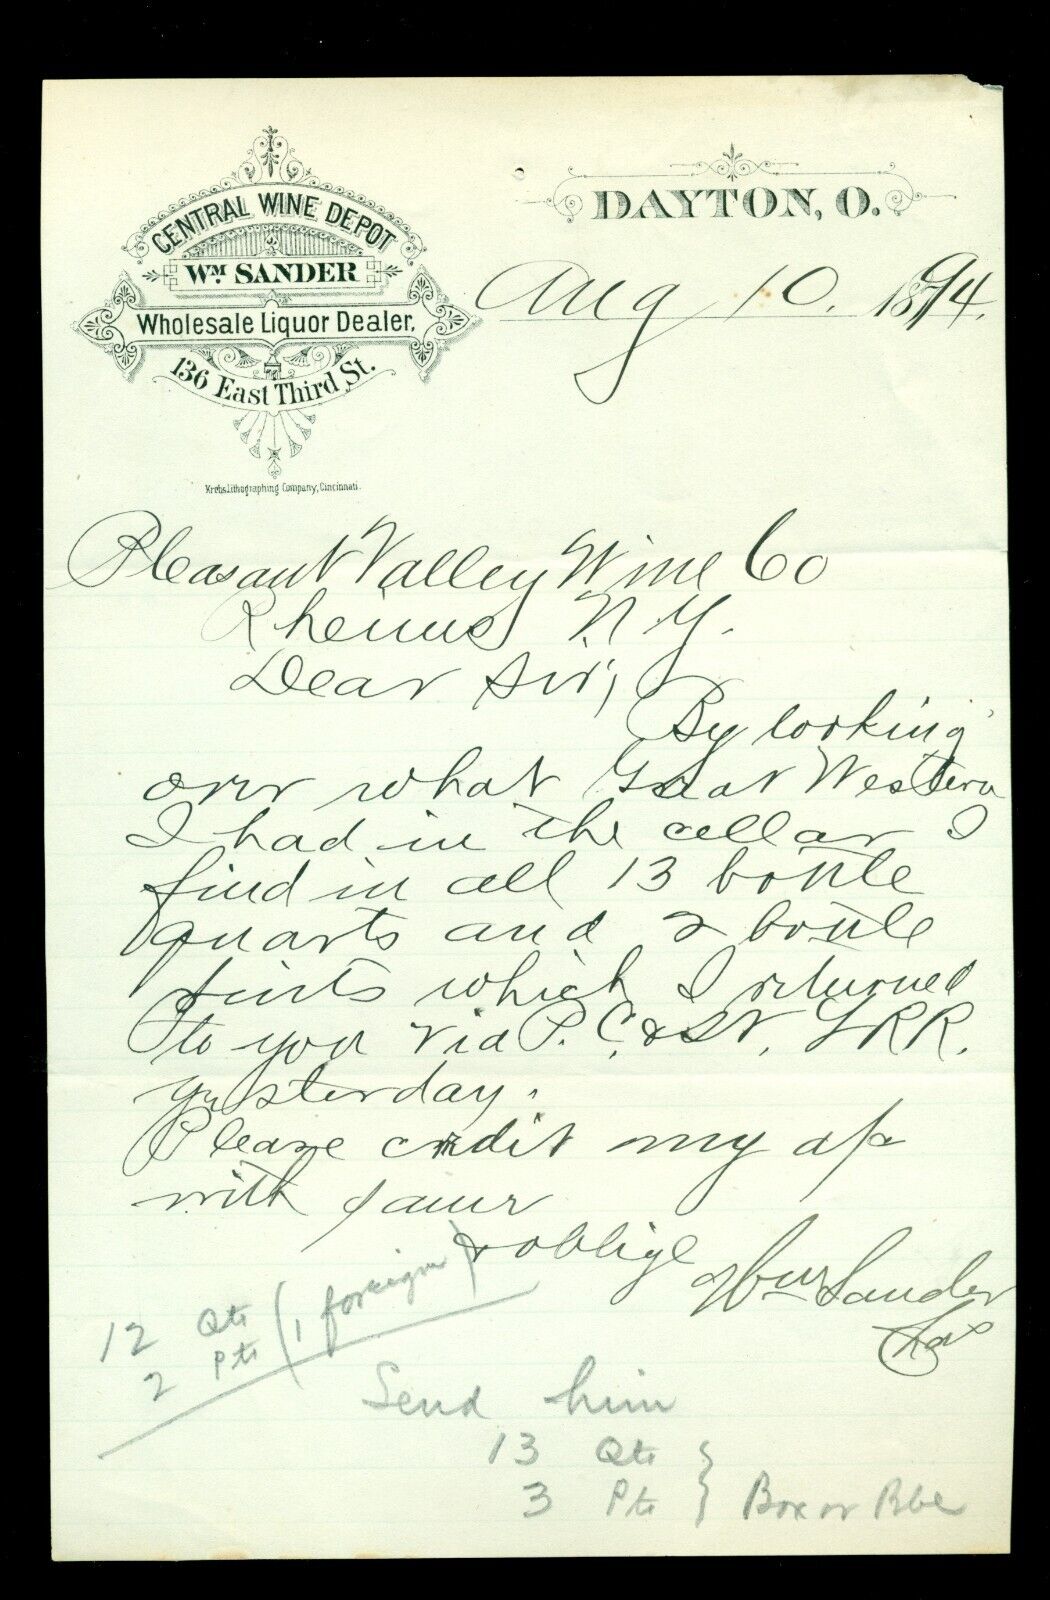 CENTRAL WINE DEPOT
WM. SANDER
Wholesale Liquor Dealer,
136 East Third St.
Krebs Lithographing Company, Cincinnati.
DAYTON, O.
Aug 10. 1894.
Pleasant Valley Wine Co
Rheims N.Y.
Dear Sir,
By looking
over what Great Western
I had in the cellar I
find in all 13 bottle
quarts and 2 bottle
pints which I returned
to you via P. C. & St. L R R.
yesterday.
Please credit my a/c
with same
& oblige
Wm Sander
12 Qts
2 Pts (1 foreign)
Send him
13 Qts
3 Pts } Box or Bbl